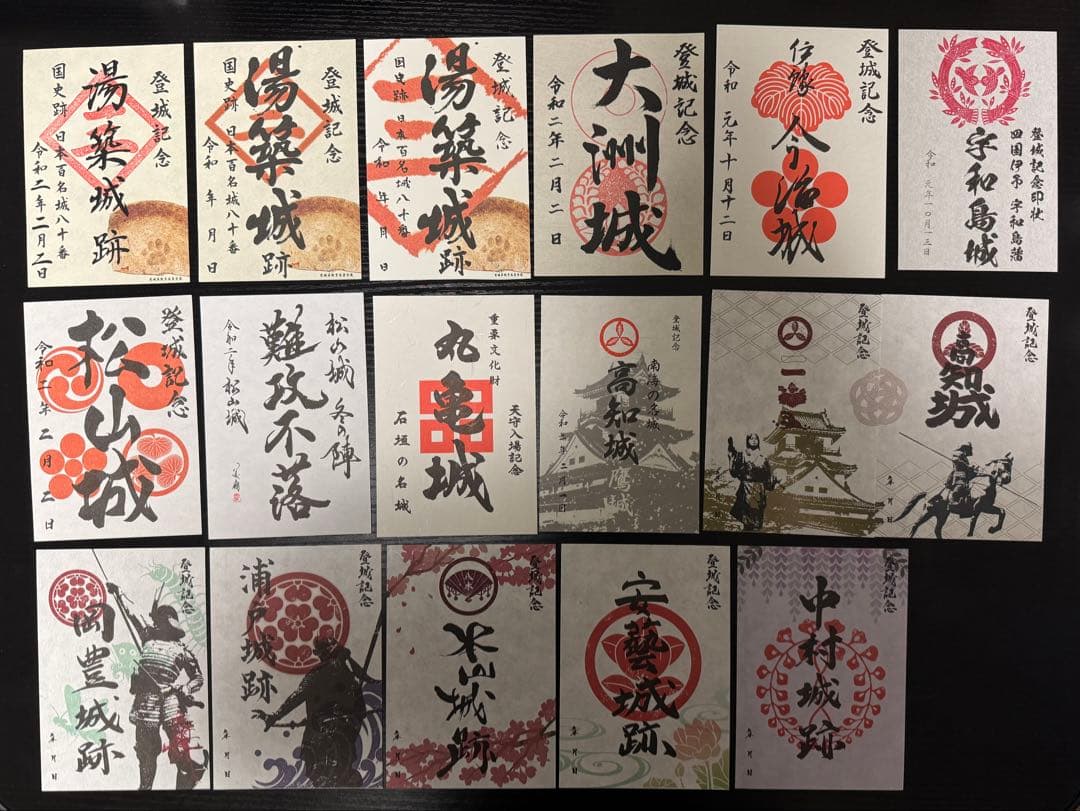 登城記念
湯築城跡
国史跡 日本百名城八十番
令和二年二月二日
登城記念
湯築城跡
国史跡 日本百名城八十番
令和 年 月 日
登城記念
湯築城跡
国史跡 日本百名城八十番
令和 年 月 日
登城記念
大洲城
令和二年二月二日
登城記念
伊豫
今治城
令和元年十月十二日
登城記念印状
四国伊予 宇和島藩
宇和島城
令和 元年一〇月一三日
登城記念
松山城
令和二年二月二日
松山城 冬の陣
難攻不落
令和二年 松山城
重要文化財
丸亀城
天守入場記念
石垣の名城
登城記念
南海の名城
高知城
鷹城
令和二年二月一日
登城記念
年 月 日
登城記念
高知城
年 月 日
登城記念
岡豊城跡
年 月 日
登城記念
浦戸城跡
年 月 日
登城記念
本山城跡
年 月 日
登城記念
安藝城跡
年 月 日
登城記念
中村城跡
年 月 日